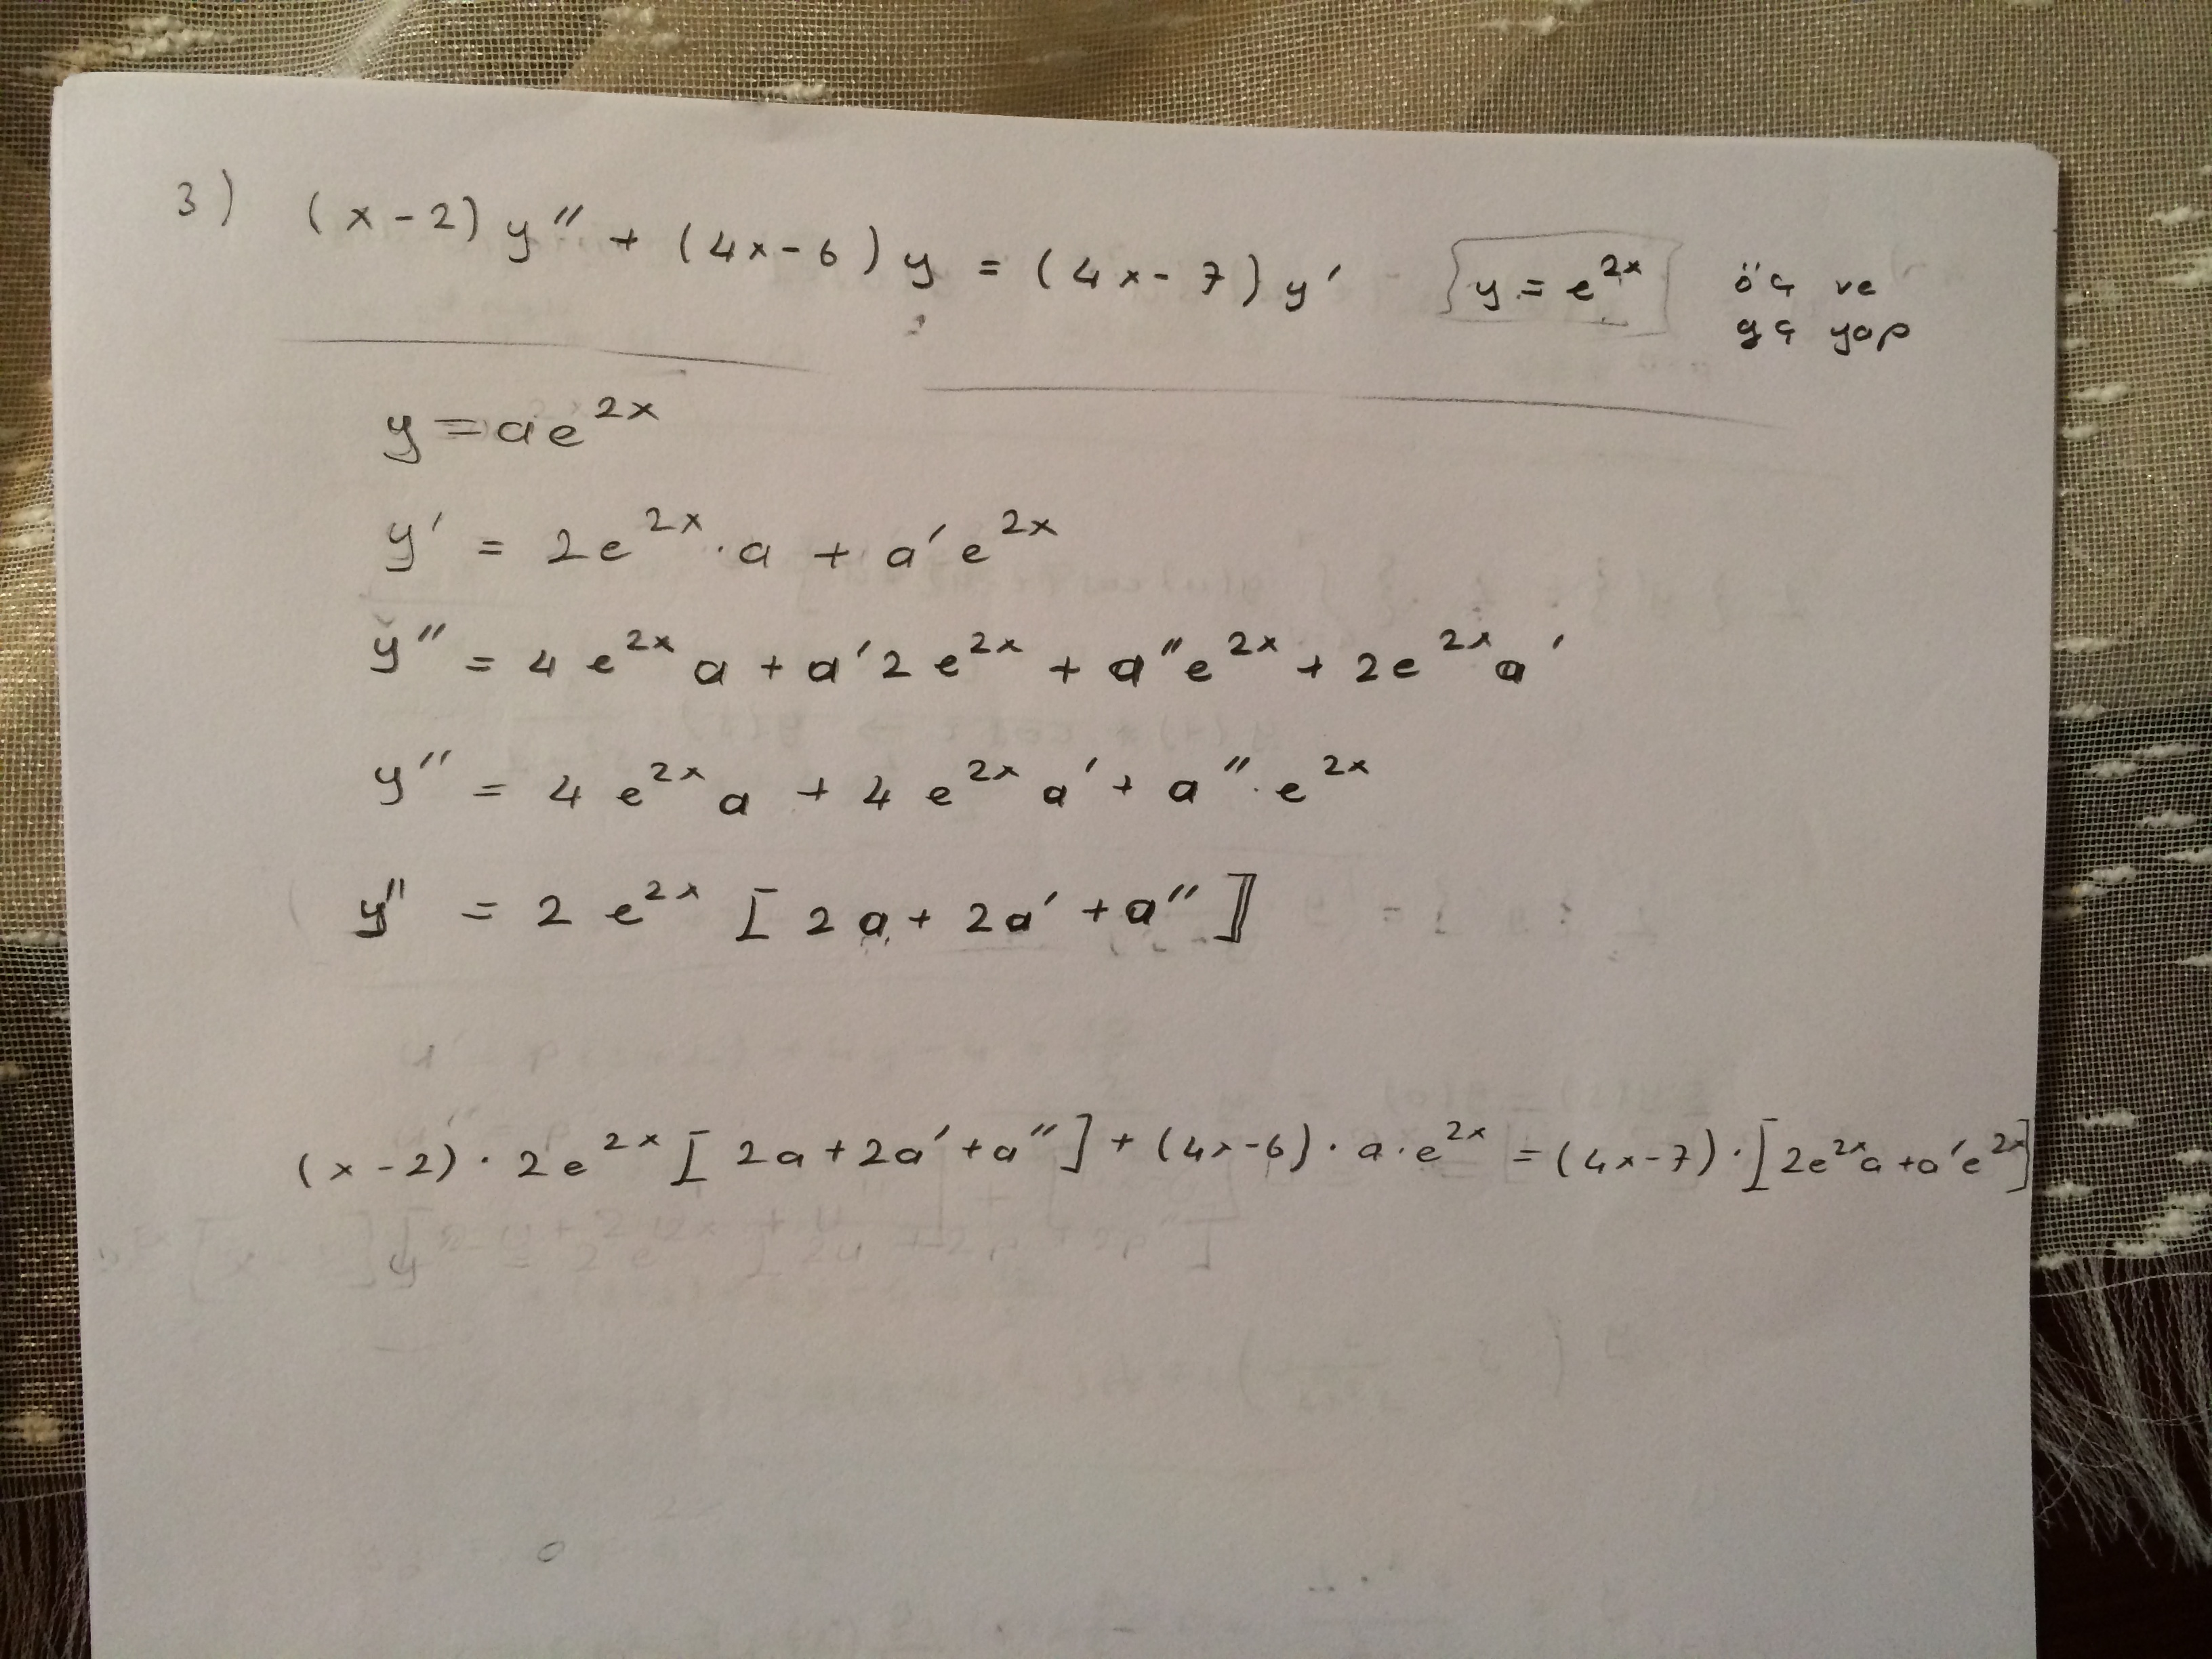 3) (x-2) y'' + (4x-6) y = (4x-7) y' y = e^2x öç ve
gç yap
y = ae^2x
y' = 2e^2x · a + a'e^2x
y'' = 4e^2x a + a'2e^2x + a''e^2x + 2e^2x a'
y'' = 4e^2x a + 4e^2x a' + a''·e^2x
y'' = 2e^2x [2a + 2a' + a'']
(x-2)·2e^2x [2a+2a'+a''] + (4x-6)·a·e^2x = (4x-7)·[2e^2x a + a'e^2x]